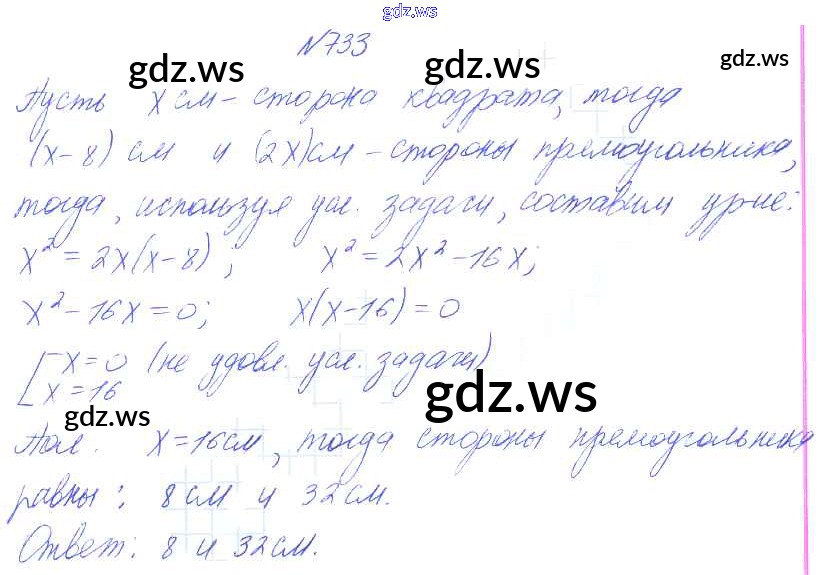 gdz.ws
№733
gdz.ws gdz.ws
Пусть x см - сторона квадрата, тогда
(x-8) см и (2x)см - стороны прямоугольника,
тогда, используя усл. задачи, составим ур-ие:
x² = 2x(x-8); x² = 2x² - 16x;
x² - 16x = 0; x(x-16) = 0
[x=0 (не удовл. усл. задачи)
x=16
gdz.ws gdz.ws
x=16см, тогда стороны прямоугольника
равны: 8 см и 32 см.
Ответ: 8 и 32 см.